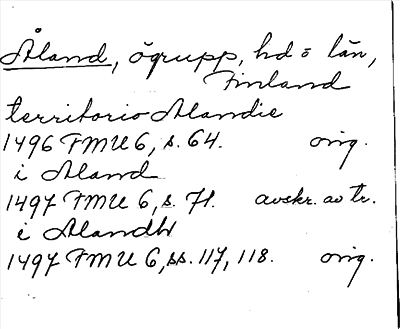 Åland, ögrupp, hd o län,
Finland
territorio Alandie
1496 FMU 6, s. 64. orig.
i Aland
1497 FMU 6, s. 71. avskr. av tr.
i Alandh
1497 FMU 6, ss. 117, 118. orig.